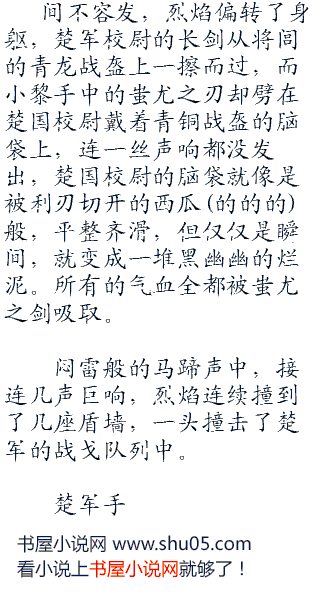 间不容发，烈焰偏转了身
躯，楚军校尉的长剑从将闾
的青龙战盔上一擦而过，而
小黎手中的蚩尤之刃却劈在
楚国校尉戴着青铜战盔的脑
袋上，连一丝声响都没发
出，楚国校尉的脑袋就像是
被利刃切开的西瓜(的的的)
般，平整齐滑，但仅仅是瞬
间，就变成一堆黑幽幽的烂
泥。所有的气血全都被蚩尤
之剑吸取。
闷雷般的马蹄声中，接
连几声巨响，烈焰连续撞到
了几座盾墙，一头撞击了楚
军的战戈队列中。
楚军手
书屋小说网 www.shu05.com
看小说上书屋小说网就够了！